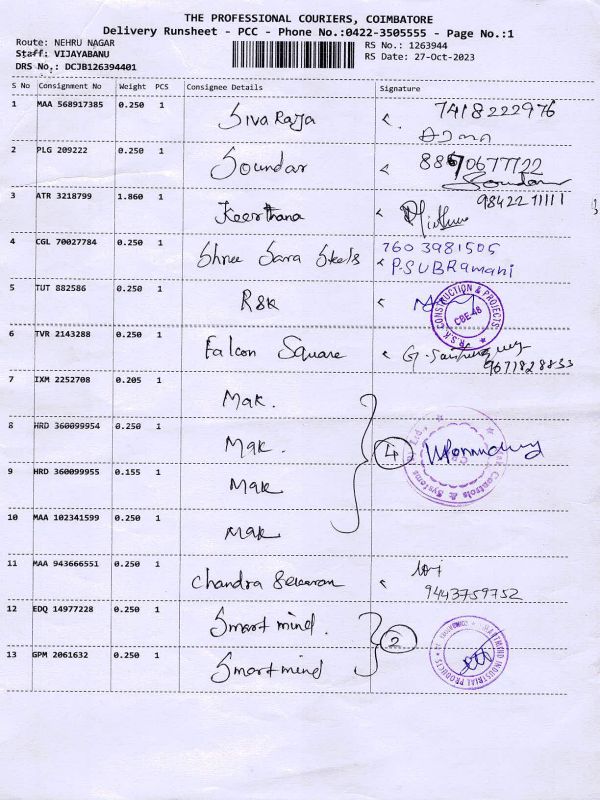 THE PROFESSIONAL COURIERS, COIMBATORE
Delivery Runsheet - PCC - Phone No.:0422-3505555 - Page No.:1
Route: NEHRU NAGAR
Staff: VIJAYABANU
DRS No.: DCJB126394401
RS No.: 1263944
RS Date: 27-Oct-2023
S No Consignment No Weight PCS Consignee Details Signature
1 MAA 568917385 0.250 1 Siva Raja 7418222976
2 PLG 209222 0.250 1 Soundar 8870677122
Soundar
3 ATR 3218799 1.860 1 Keerthana 9842211111
4 CGL 70027784 0.250 1 Shree Sara Steels 760 3981505
P.SUBRamani
5 TUT 882586 0.250 1 RSK
R.S.K. CONSTRUCTION & PROJECTS
CBE-48
6 TVR 2143288 0.250 1 Falcon Square
9671828833
7 IXM 2252708 0.205 1 Mak.
8 HRD 360099954 0.250 1 Mak. 4
Controls & Systems
9 HRD 360099955 0.155 1 Mak
10 MAA 102341599 0.250 1 Mak
11 MAA 943666551 0.250 1 Chandra Sekaran
9443759752
12 EDQ 14977228 0.250 1 Smart mind. 2
SMARTMIND INDUSTRIAL PRODUCTS
13 GPM 2061632 0.250 1 Smart mind